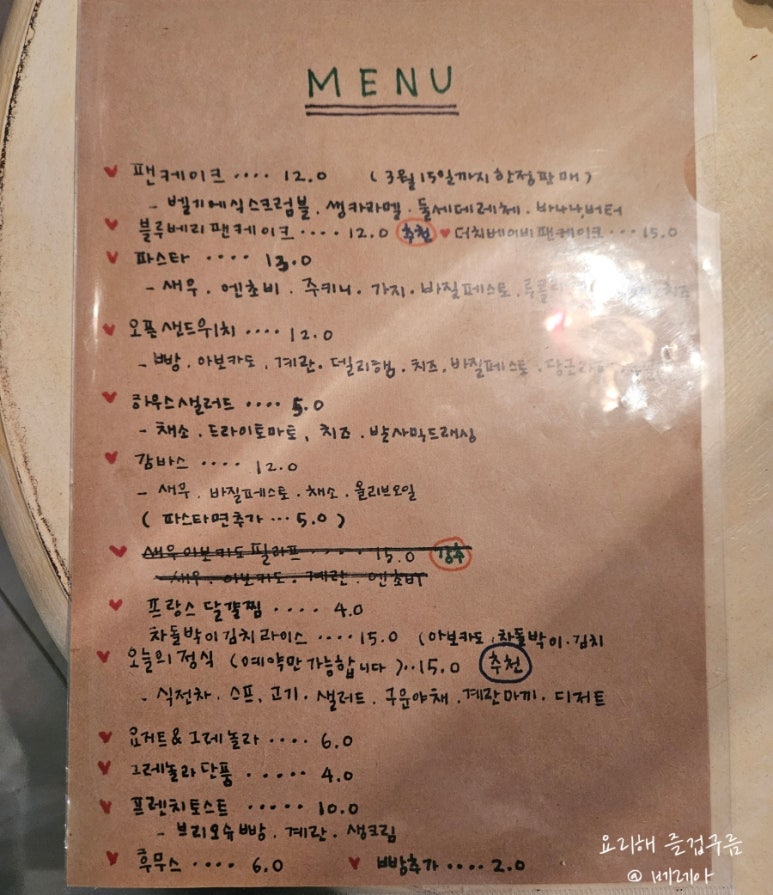 MENU
♥ 팬케이크 .... 12.0 (3월15일까지 한정판매)
- 벨기에식스크럼블 . 생카라멜 . 둘세데레체 . 바나나, 버터
♥ 블루베리 팬케이크 .... 12.0 추천 ♥ 더치베이비 팬케이크 ... 15.0
♥ 파스타 .... 13.0
- 새우 . 엔쵸비 . 주키니 . 가지 . 바질페스토 . 치즈
♥ 오픈샌드위치 .... 12.0
- 빵 . 아보카도 . 계란 . 델리햄 . 치즈 . 바질페스토 .
♥ 하우스샐러드 .... 5.0
- 채소 . 드라이토마토, 치즈 . 발사믹드레싱
♥ 감바스 .... 12.0
- 새우 . 바질페스토 . 채소 . 올리브오일
(파스타면추가 ... 5.0)
♥ 새우아보카도필라프 ..... 15.0 강추
- 새우 . 아보카도 . 계란 . 엔쵸비
♥ 프랑스 달걀찜 .... 4.0
차돌박이김치라이스 .... 15.0 (아보카도, 차돌박이 . 김치
♥ 오늘의 정식 (예약만가능합니다)..15.0 추천
- 식전차 . 스프, 고기 . 샐러드 . 구운야채 . 계란마끼 . 디저트
♥ 요거트&그레놀라 .... 6.0
♥ 그레놀라단품 ..... 4.0
♥ 프렌치토스트 ..... 10.0
- 브리오슈빵 . 계란 . 생크림
♥ 후무스 .... 6.0 ♥ 빵추가 .... 2.0
요리해 즐겁구름
@ 베레아